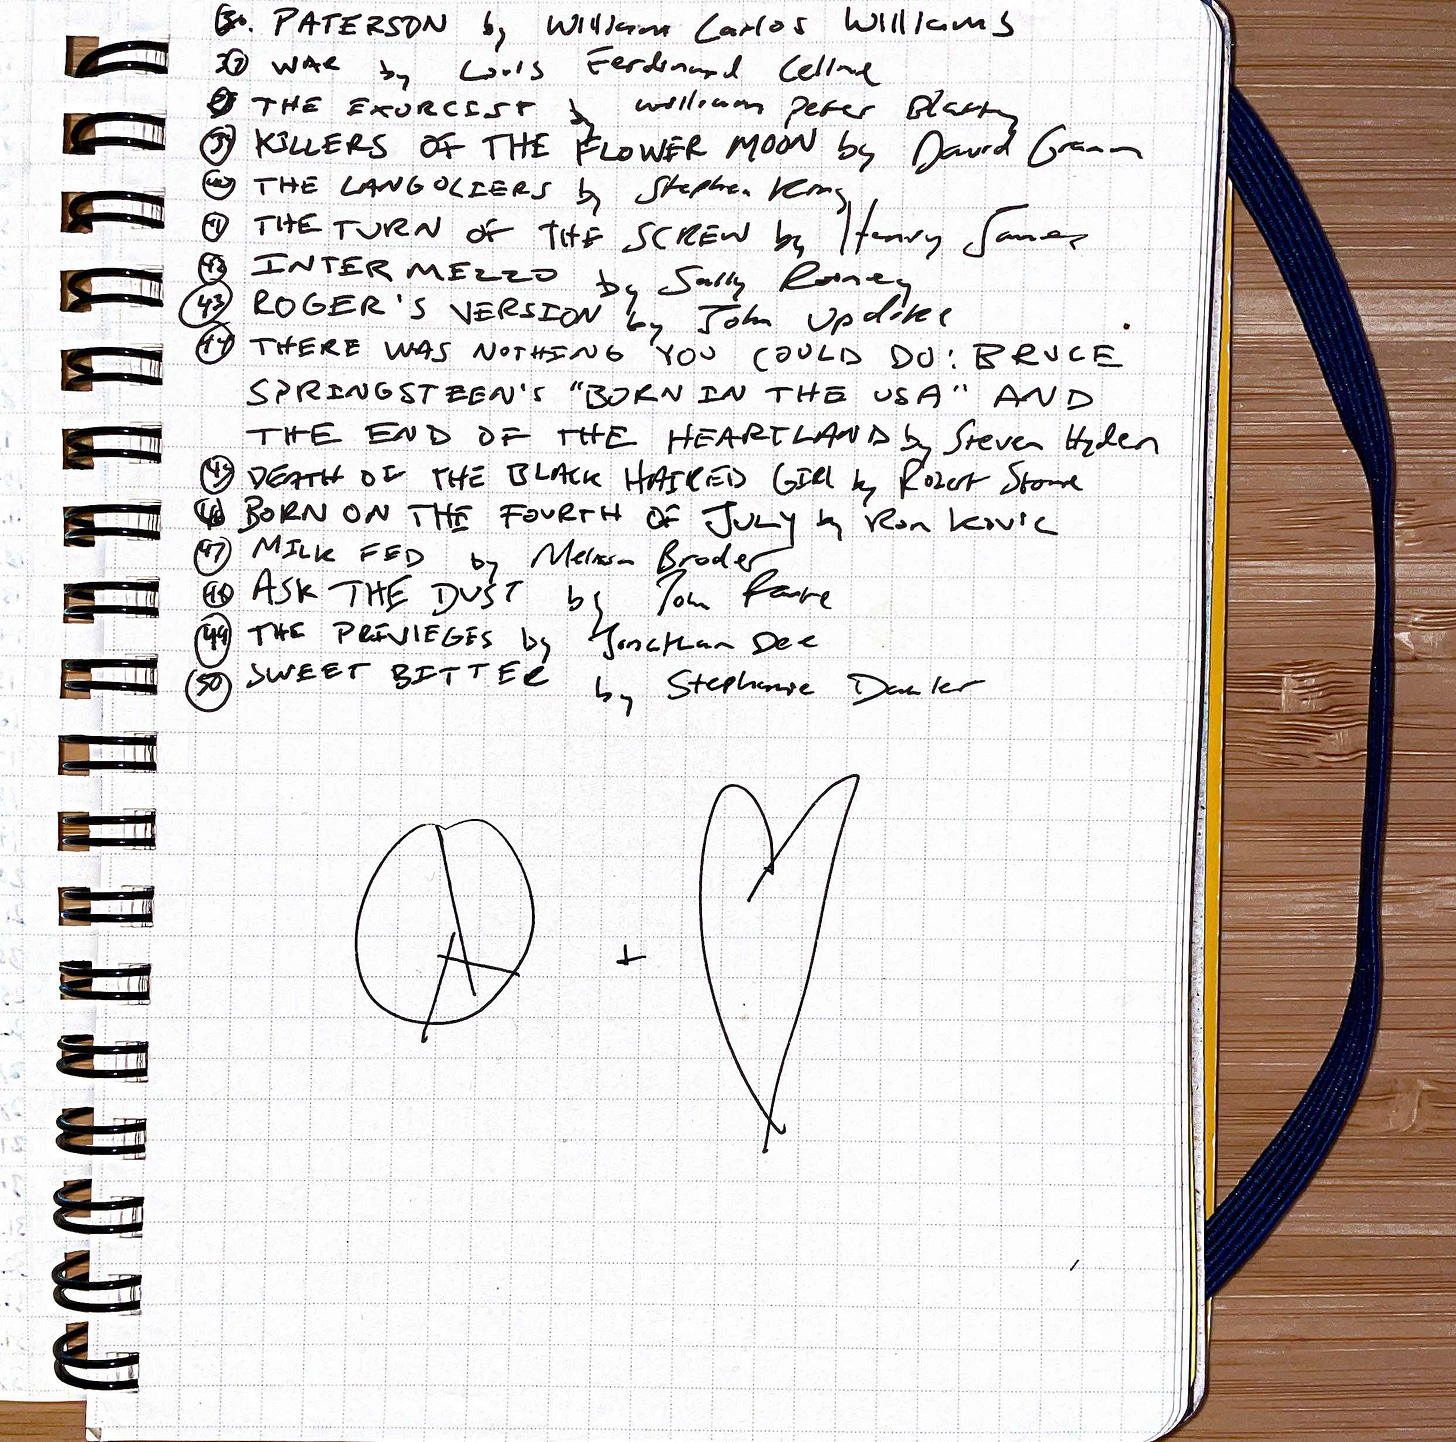 36. PATERSON by William Carlos Williams
37 WAR by Louis Ferdinand Celine
THE EXORCIST by William Peter Blatty
39 KILLERS OF THE FLOWER MOON by David Grann
40 THE LANGOLIERS by Stephen King
41 THE TURN OF THE SCREW by Henry James
42 INTERMEZZO by Sally Rooney
43 ROGER'S VERSION by John Updike
44 THERE WAS NOTHING YOU COULD DO: BRUCE
SPRINGSTEEN'S "BORN IN THE USA" AND
THE END OF THE HEARTLAND by Steven Hyden
45 DEATH OF THE BLACK HAIRED GIRL by Robert Stone
46 BORN ON THE FOURTH OF JULY by Ron Kovic
47 MILK FED by Melissa Broder
48 ASK THE DUST by John Fante
49 THE PRIVIEGES by Jonathan Dee
50 SWEET BITTER by Stephanie Danler
A +